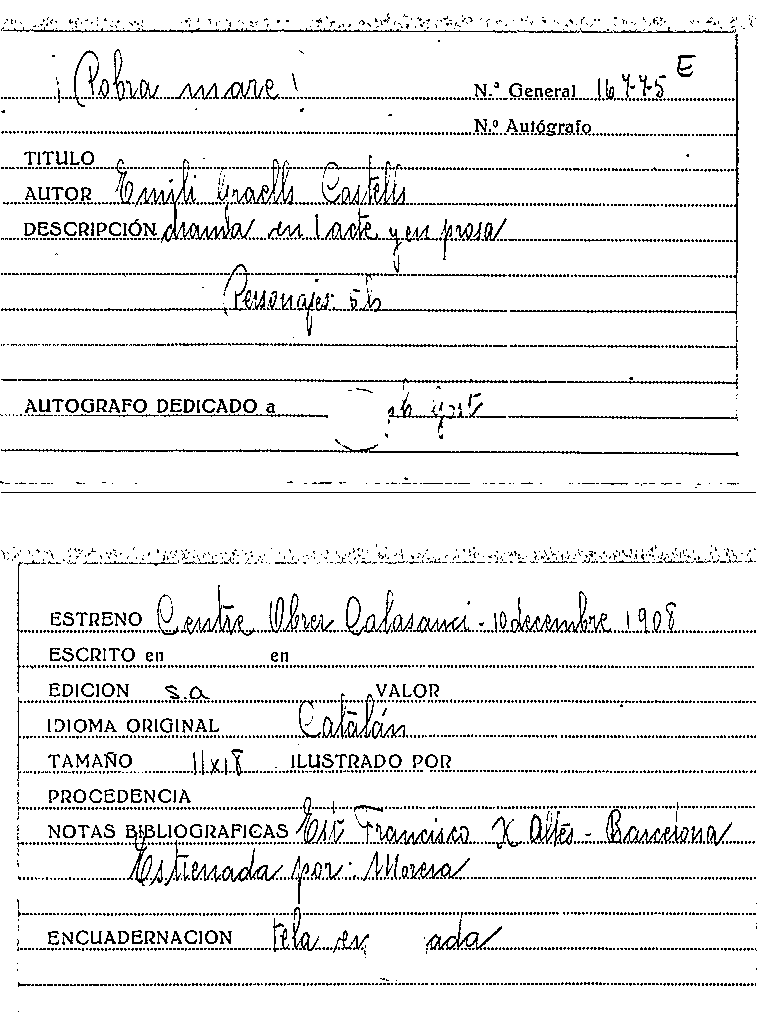 ¡Pobra mare!
N.º General 16775 E
N.º Autógrafo
TITULO
AUTOR Emili Graells Castells
DESCRIPCIÓN drama en 1 acte y en prosa
Personajes: 5h
AUTOGRAFO DEDICADO a
ESTRENO Centre Obrer Calasanci - 10 decembre 1908
ESCRITO en en
EDICION s.a VALOR
IDIOMA ORIGINAL Catalán
TAMAÑO 11x18 ILUSTRADO POR
PROCEDENCIA
NOTAS BIBLIOGRAFICAS Est Francisco X Altés - Barcelona
Estrenada por: Morera
ENCUADERNACION tela